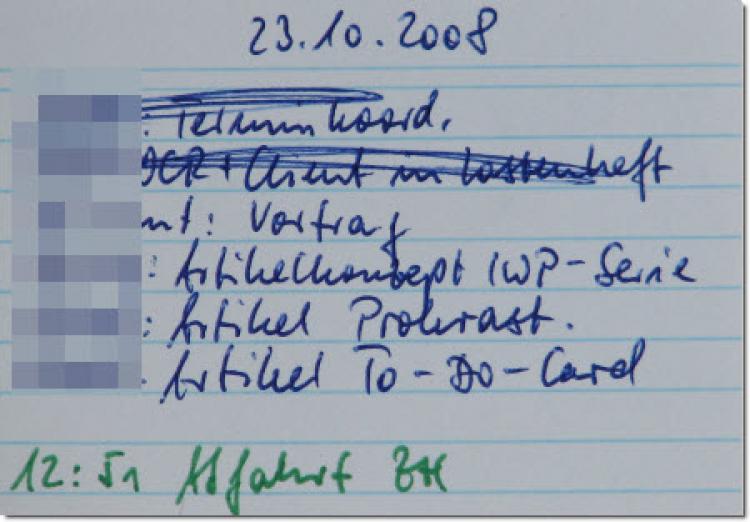 23.10.2008
: Terminkoord.
OCR + Client in Lastenheft
nt: Vortrag
: Artikelkonzept IWP-Serie
: Artikel Prokrast.
. Artikel To-Do-Card
12:51 Abfahrt